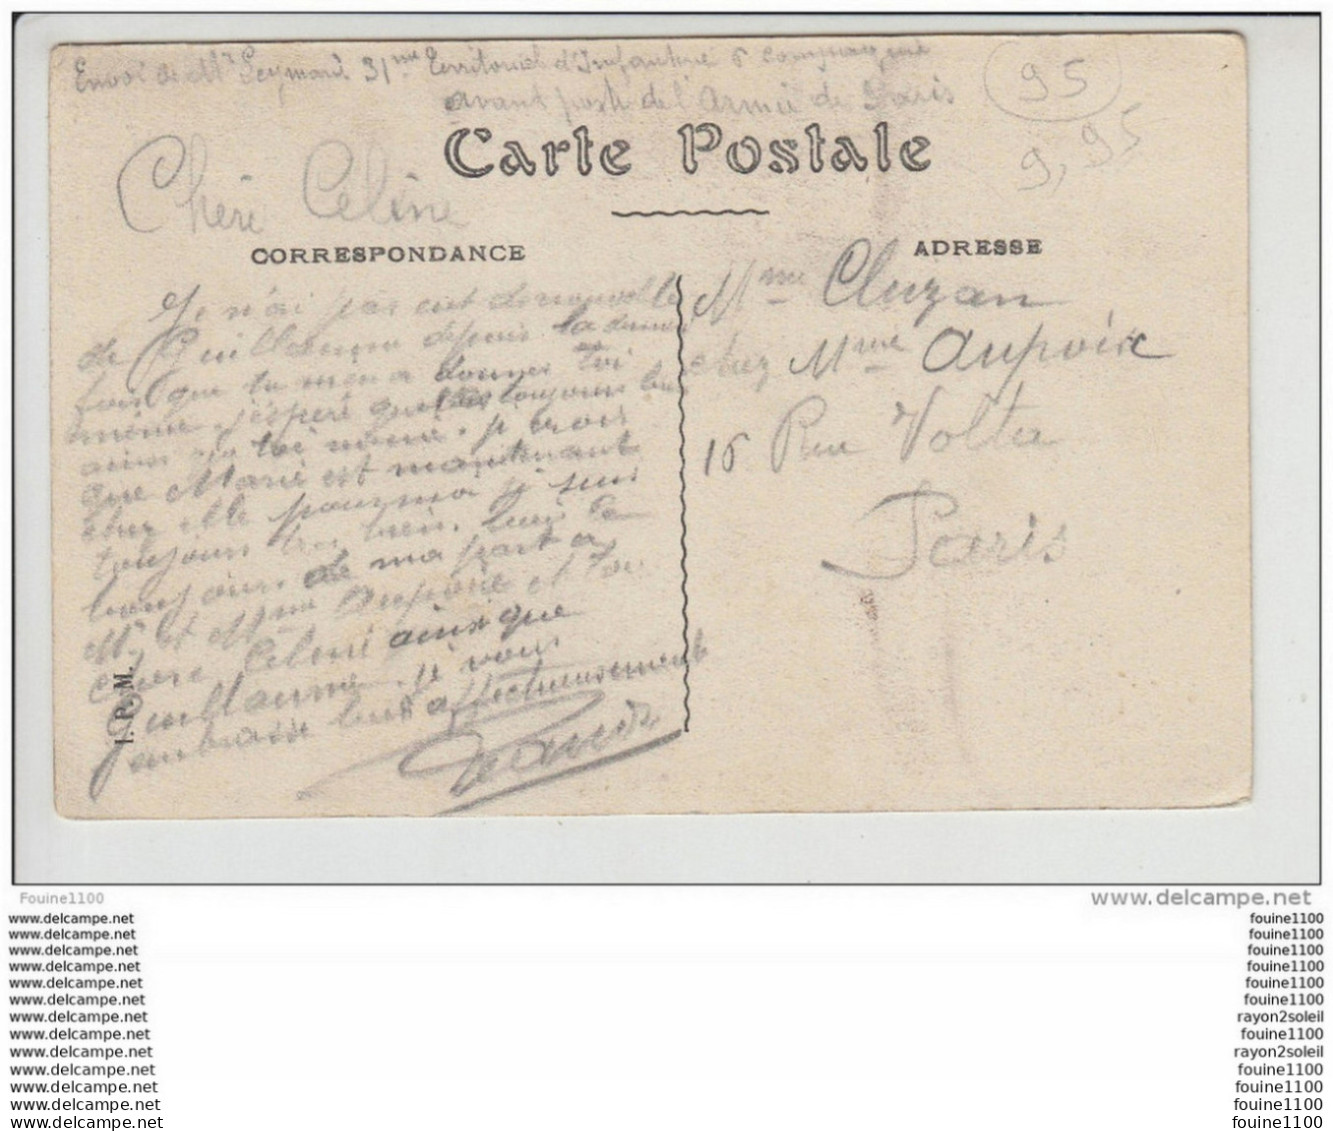 Envoi de Mr Peymard 31me Territorial d'Infanterie 6 compagnie
avant poste de l'Armée de Paris
95
9,95
Carte Postale
Chère Celine
CORRESPONDANCE
ADRESSE
Je n'ai pas eut de nouvelle
de Guillaume depuis la derniere
fois que tu m'en a donner Toi
même, j'espère quil est toujours bien
ainsi que toi même. je crois
que Marie est maintenant
chez elle pour moi je suis
toujours tres bien. bien le
bonjour de ma part a
Mr et Mme Aupoix et toi
chere Celine ainsi que
Guillaume. je vous
embrasse bien affectueusement
Mme Cluzan
chez Mme Aupoix
16 Rue Volta
Paris
I. P. M.
Fouine1100
www.delcampe.net
www.delcampe.net
www.delcampe.net
www.delcampe.net
www.delcampe.net
www.delcampe.net
www.delcampe.net
www.delcampe.net
www.delcampe.net
www.delcampe.net
www.delcampe.net
www.delcampe.net
www.delcampe.net
www.delcampe.net
fouine1100
fouine1100
fouine1100
fouine1100
fouine1100
fouine1100
rayon2soleil
fouine1100
rayon2soleil
fouine1100
fouine1100
fouine1100
fouine1100